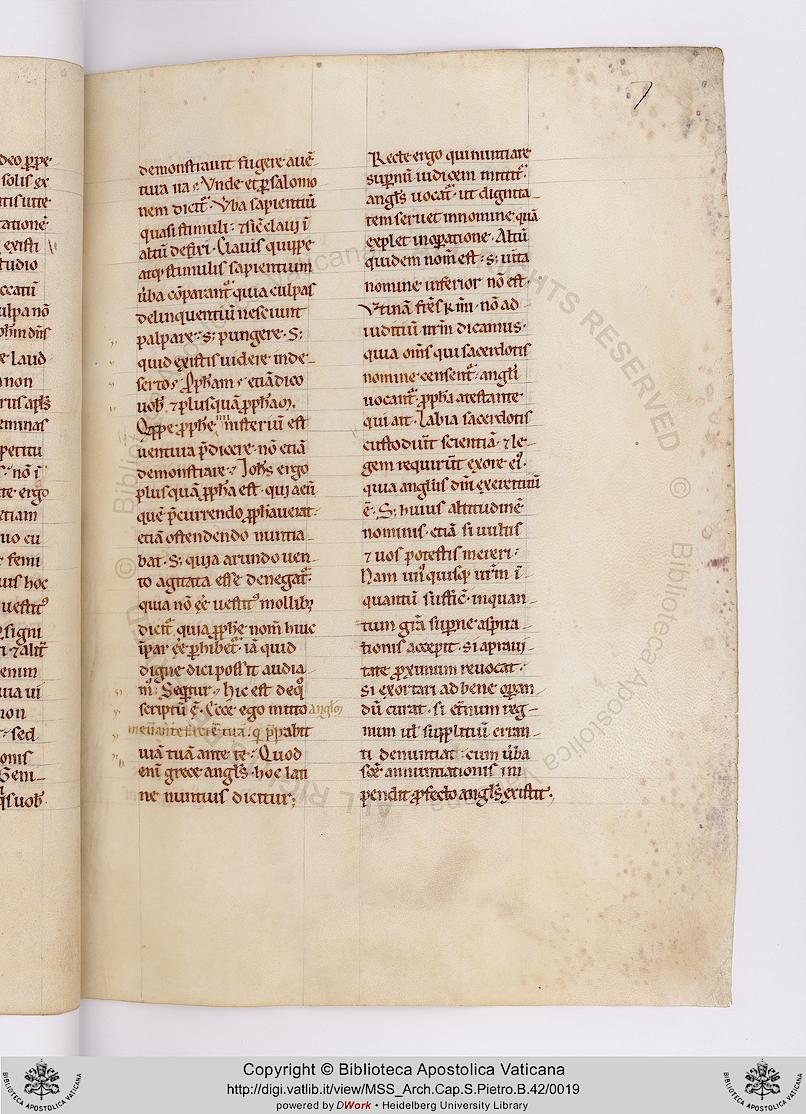 7
demonstravit fugere avē
tura ira? Unde et p salomo
nem dicit̃. Vba sapientiū
quasi stimuli: ⁊ sic̄ clavi ī
altū defixi. Clavis quippe
atq; stimulis sapientium
ūba cōparant᷑ quia culpas
delinquentiū nesciunt
palpare: s; pungere. S;
quid existis videre inde-
serto? Ppham? etiā dico
vob̄ ⁊ plus quā ppham.
Qppe pphe ministeriū est
ventura p̄dicere. nō etiā
demonstrare. Ioh̄s ergo
plus quā ppha est. qui aeū
quē p̄currendo pphaverat
etiā ostendendo nuntia-
bat. S; quia arundo ven-
to agitata esse denegat᷑.
quia nō ee vestit᷒ mollib;
dicit᷑ quia pphe nom̄ huic
īpar ee phibet᷑. iā quid
digne dici possit audia-
m᷒. Sequitur. hic est de q̄
scriptū ē. Ecce ego mitto anglm
meū ante faciē tuā. q ppabit
viā tuā ante te. Quod
eni grece angls̄. hoc lati
ne nuntius dicitur;
Recte ergo qui nuntiare
supnū iudicem mittit᷑.
angls̄ vocat᷑. ut dignita-
tem servet in nomine quā
explet in opatione. Altū
quidem nom̄ est. s; vita
nomine inferior nō est.
Utinā frs̄ km̄. nō ad
iudiciū nr̄m dicamus.
quia oms̄ qui sacerdotis
nomine censent᷑. angli
vocant᷑. ppha atestante
qui ait. Labia sacerdotis
custodiūt scientiā. ⁊ le-
gem requirūt ex ore ei᷒.
quia angls̄ dn̄i exercituū
ē. S; huius altitudinē
nominis. etiā si vultis
⁊ vos potestis mereri.
Nam un᷒quisq; vr̄m ī
quantū sufficit. inquan-
tum grā supne aspira-
tionis accepit. si a pravi-
tate pximum revocat.
si exortari ad bene opan-
dū curat. si et̄num reg-
num ul̄ suppliciū erran-
ti denuntiat: cum ūba
sc̄e annuntiationis im
pendit pfecto angls̄ existit.
Copyright © Biblioteca Apostolica Vaticana
http://digi.vatlib.it/view/MSS_Arch.Cap.S.Pietro.B.42/0019
powered by DWork • Heidelberg University Library